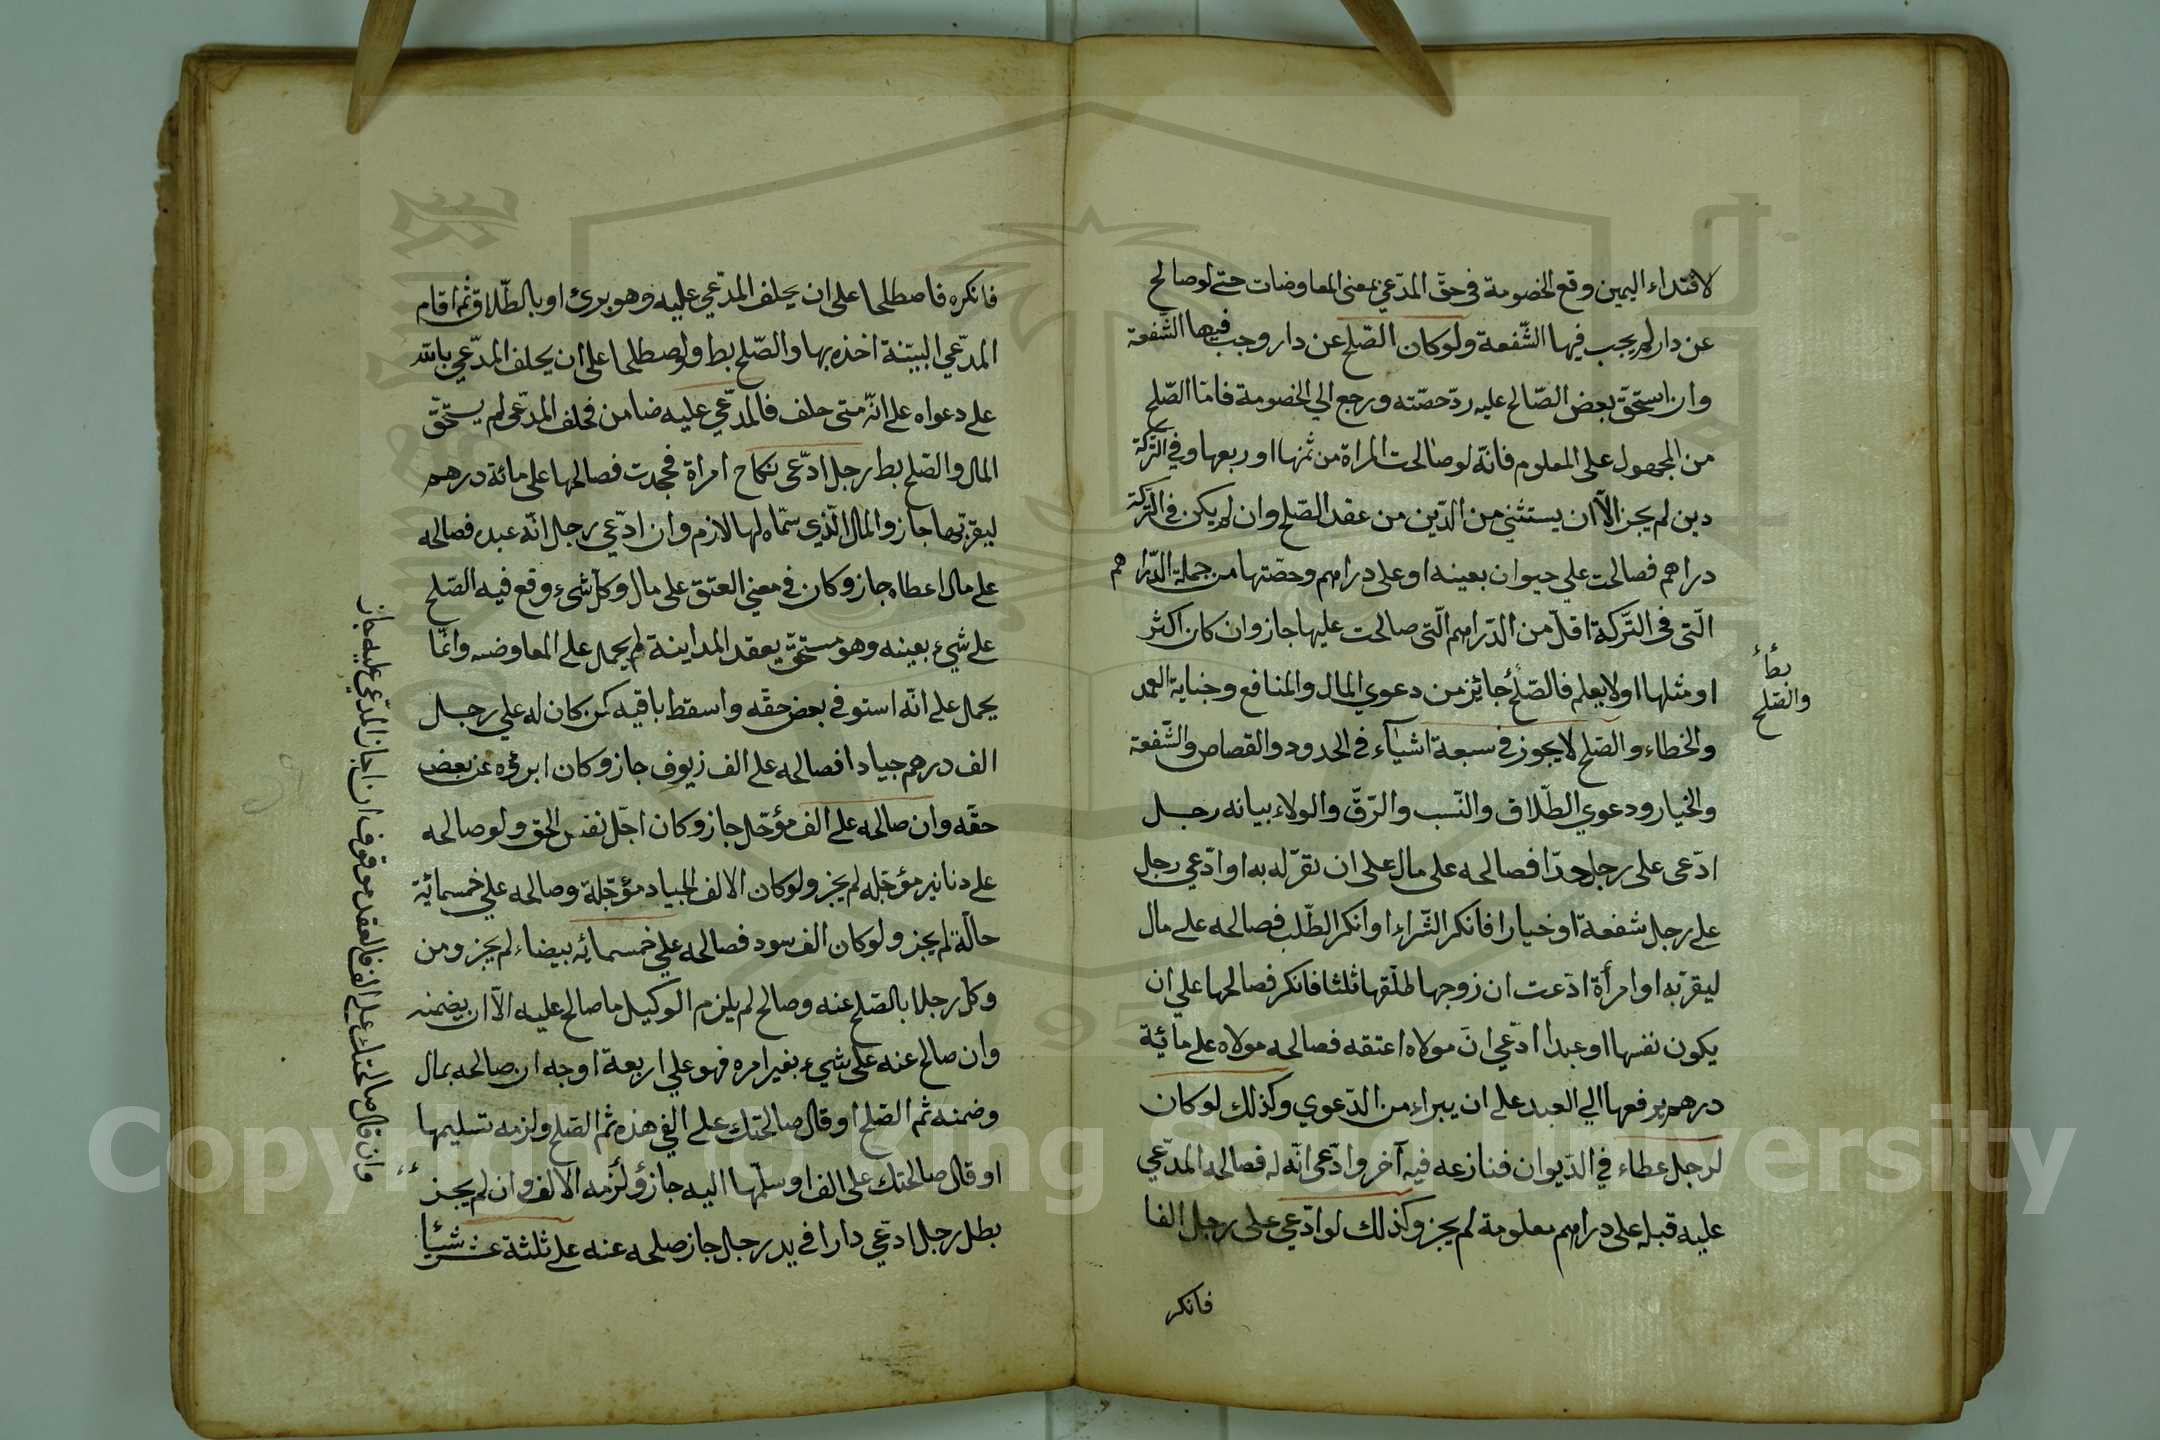 لافتداء اليمين وقع الخصومة في حقّ المدّعي بمعنى المعاوضات حتى لو صالح
عن دار لم يجب فيها الشّفعة ولو كان الصّلح عن دار وجب فيها الشّفعة
وان استحقّ بعض الصّالح عليه ردّ حصّته ورجع الي الخصومة فامّا الصّلح
من المجهول على المعلوم فانّه لو صالحت المراة من ثمنها او ربعها وفي التّركة
دين لم يجز الّا ان يستثني من الدّين من عقد الصّلح وان لم يكن في التّركة
دراهم فصالحت علي حيوان بعينه او على دراهم وحصّتها من جملة الدّراهم
الّتي في التّركة اقلّ من الدّراهم الّتي صالحت عليها جاز وان كان اكثر
او مثلها او لا يعلم فالصّلح جائز من دعوي المال والمنافع وجناية العمد
والخطاء والصّلح لا يجوز في سبعة اشيآء في الحدود والقصاص والشّفعة
والخيار ودعوي الطّلاق والنّسب والرّقّ والولاء بيانه رجل
ادّعى على رجل حدّا فصالحه على مال على ان يقرّ له به او ادّعي رجل
علي رجل شفعة او خيارا فانكر الشّراء او انكر الطّلب فصالحه علي مال
ليقرّ به او امرأة ادّعت ان زوجها طلّقها ثلثا فانكر فصالحها علي ان
يكون نفسها او عبدا ادّعي انّ مولاه اعتقه فصالحه مولاه علي مائة
درهم يرفعها الي العبد علي ان يبراء من الدّعوي وكذلك لو كان
لرجل عطاء في الدّيوان فنازعه فيه آخر وادّعى انّه له فصالحه المدّعي
عليه قبله على دراهم معلومة لم يجز وكذلك لو ادّعي على رجل الفا
فانكر
بطا
والصّلح
فانكره فاصطلحا على ان يحلف المدّعي عليه وهو برئ او بالطّلاق ثمّ اقام
المدّعي البيّنة اخذه بها والصّلح بط ولو اصطلحا على ان يحلف المدّعي بالله
علي دعواه علي انّه متى حلف فالمدّعي عليه ضامن فحلف المدّعى لم يستحقّ
المال والصّلح بط رجل ادّعى نكاح امراة فجحدت فصالحها على مائة درهم
ليقرّ بها جاز والمال الّذي سمّاه لها لازم وان ادّعي رجل انّه عبده فصالحه
علي مال اعطاه جاز وكان في معني العتق على مال وكلّ شيء وقع فيه الصّلح
علي شيء بعينه وهو مستحقّ بعقد المداينة لم يحمل علي المعاوضه وانّما
يحمل علي انّه استوفي بعض حقّه واسقط باقيه كمن كان له علي رجل
الف درهم جيادا فصالحه علي الف زيوف جاز وكان ابرؤه عن بعض
حقّه وان صالحه علي الف مؤجّل جاز وكان اجّل نفس الحق ولو صالحه
علي دنانير مؤجّله لم يجز ولو كان الالف الجياد مؤجّلة وصالحه علي خمسمائة
حالّة لم يجز ولو كان الف سود فصالحه علي خمسمائه بيضاء لم يجز ومن
وكل رجلا بالصّلح عنه وصالح لم يلزم الوكيل ما صالح عليه الّا ان يضمنه
وان صالح عنه على شيء بغير امره فهو علي اربعة اوجه ان صالحه بمال
وضمنه ثم الصّلح او قال صالحتك علي الفي هذه ثم الصّلح ولزمه تسليمها
او قال صالحتك على الف او سلّمها اليه جاز ولزمه الالف وان لم يجز
بطل رجل ادّعي دارا في يد رجل جاز صلحه عنه علي ثلثة عشر شيئا
وان قال صالحتك علي الف فالعقد موقوف ان اجاز المدّعي عليه جاز